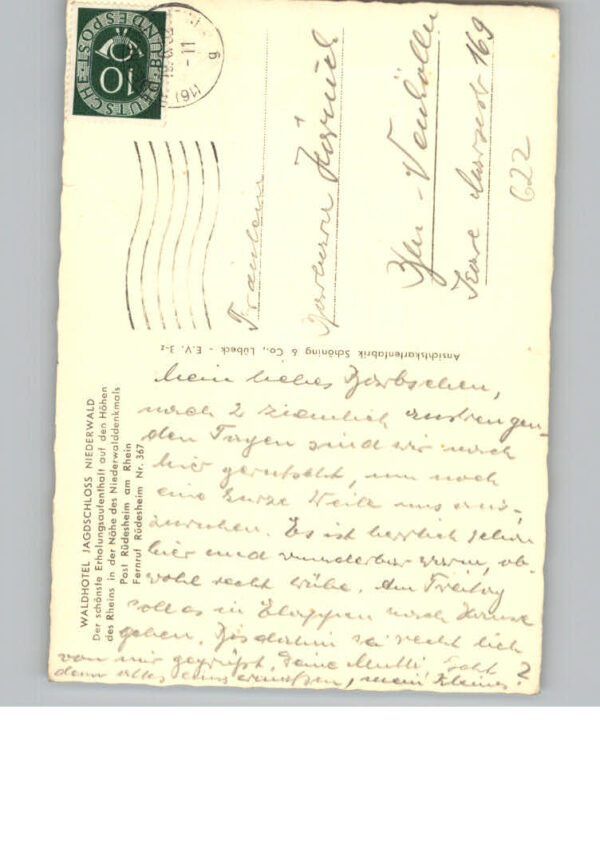 WALDHOTEL JAGDSCHLOSS NIEDERWALD
Der schönste Erholungsaufenthalt auf den Höhen
des Rheins in der Nähe des Niederwalddenkmals
Post Rüdesheim am Rhein
Fernruf Rüdesheim Nr. 367
Mein liebes Bärbchen,
nach 2 ziemlich anstrengen-
den Tagen sind wir nach
hier gerutscht, um noch
eine kurze Weile uns aus-
zuruhen. Es ist herrlich schön
hier und wunderbar warm, ob-
wohl recht trübe. Am Freitag
soll es in Etappen nach Hause
gehen. Bis dahin sei recht lieb
von mir gegrüßt. Deine Mutti Geht
denn alles einigermaßen, mein Kleines?
Ansichtskartenfabrik Schöning & Co., Lübeck - E.V. 3-z
DEUTSCHE BUNDESPOST
10
(16)
-11
g
Fräulein
Barbara
Bln - Neukölln
Karl Marxstr 169
622